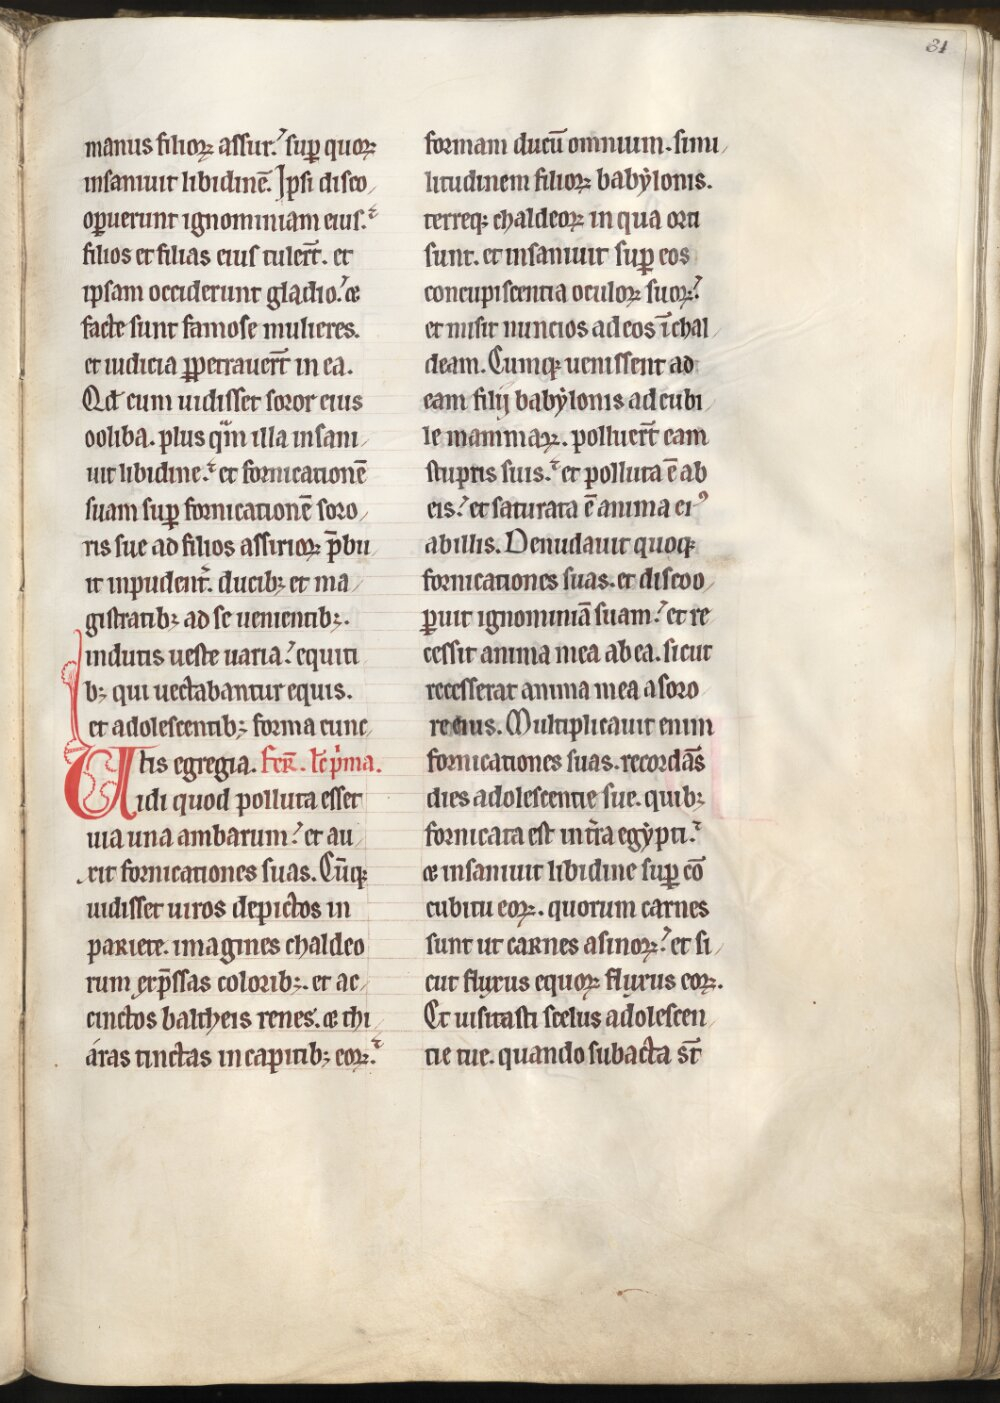 31
manus filioꝝ assur.' suꝑ quoꝝ
insaniuit libidinē. Ipsi disco
oꝑuerunt ignominiam eius.'
filios et filias eius tulert̄. et
ipsam occiderunt gladio.' &
facte sunt famose mulieres.
et iudicia ꝑpetrauert̄ in ea.
Qd̄ cum uidisset soror eius
ooliba. plus qm̄ illa insani
uit libidine.' et fornicationē
suam suꝑ fornicationē soro
ris sue ad filios assirioꝝ p̄bu
it inpudent̄. ducibꝫ et ma
gistratibꝫ ad se uenientibꝫ.
indutis ueste uaria.' equiti
bꝫ qui uectabantur equis.
et adolescentibꝫ forma cunc
tis egregia. fer̄. lc̄ p'ma.
Uidi quod polluta esset
uia una ambarum.' et au
xit fornicationes suas. Cūqꝫ
uidisset uiros depictos in
pariete. imagines chaldeo
rum exp̄ssas coloribꝫ. et ac
cinctos baltheis renes. & thi
aras tinctas in capitibꝫ eoꝝ.'
formam ducū omnium. simi
litudinem filioꝝ babẏlonis.
terreqꝫ chaldeoꝝ in qua orti
sunt. et insaniuit suꝑ eos
concupiscentia oculoꝝ suoꝝ.'
et misit nuncios ad eos ī chal
deam. Cumqꝫ uenissent ad
eam filij babẏlonis ad cubi
le mammaꝝ. polluert̄ eam
stupris suis.' et polluta ē ab
eis.' et saturata ē anima eiꝰ
ab illis. Denudauit quoqꝫ
fornicationes suas. et discoo
ꝑuit ignominiā suam.' et re
cessit anima mea ab ea. sicut
recesserat anima mea a soro
re eius. Multiplicauit enim
fornicationes suas. recordās
dies adolescentie sue. quibꝫ
fornicata est in t̄ra egẏpti.'
& insaniuit libidine suꝑ cō
cubitu eoꝝ. quorum carnes
sunt ut carnes asinoꝝ.' et si
cut fluxus equoꝝ fluxus eoꝝ.
Et uisitasti scelus adolescen
tie tue. quando subacta st̄